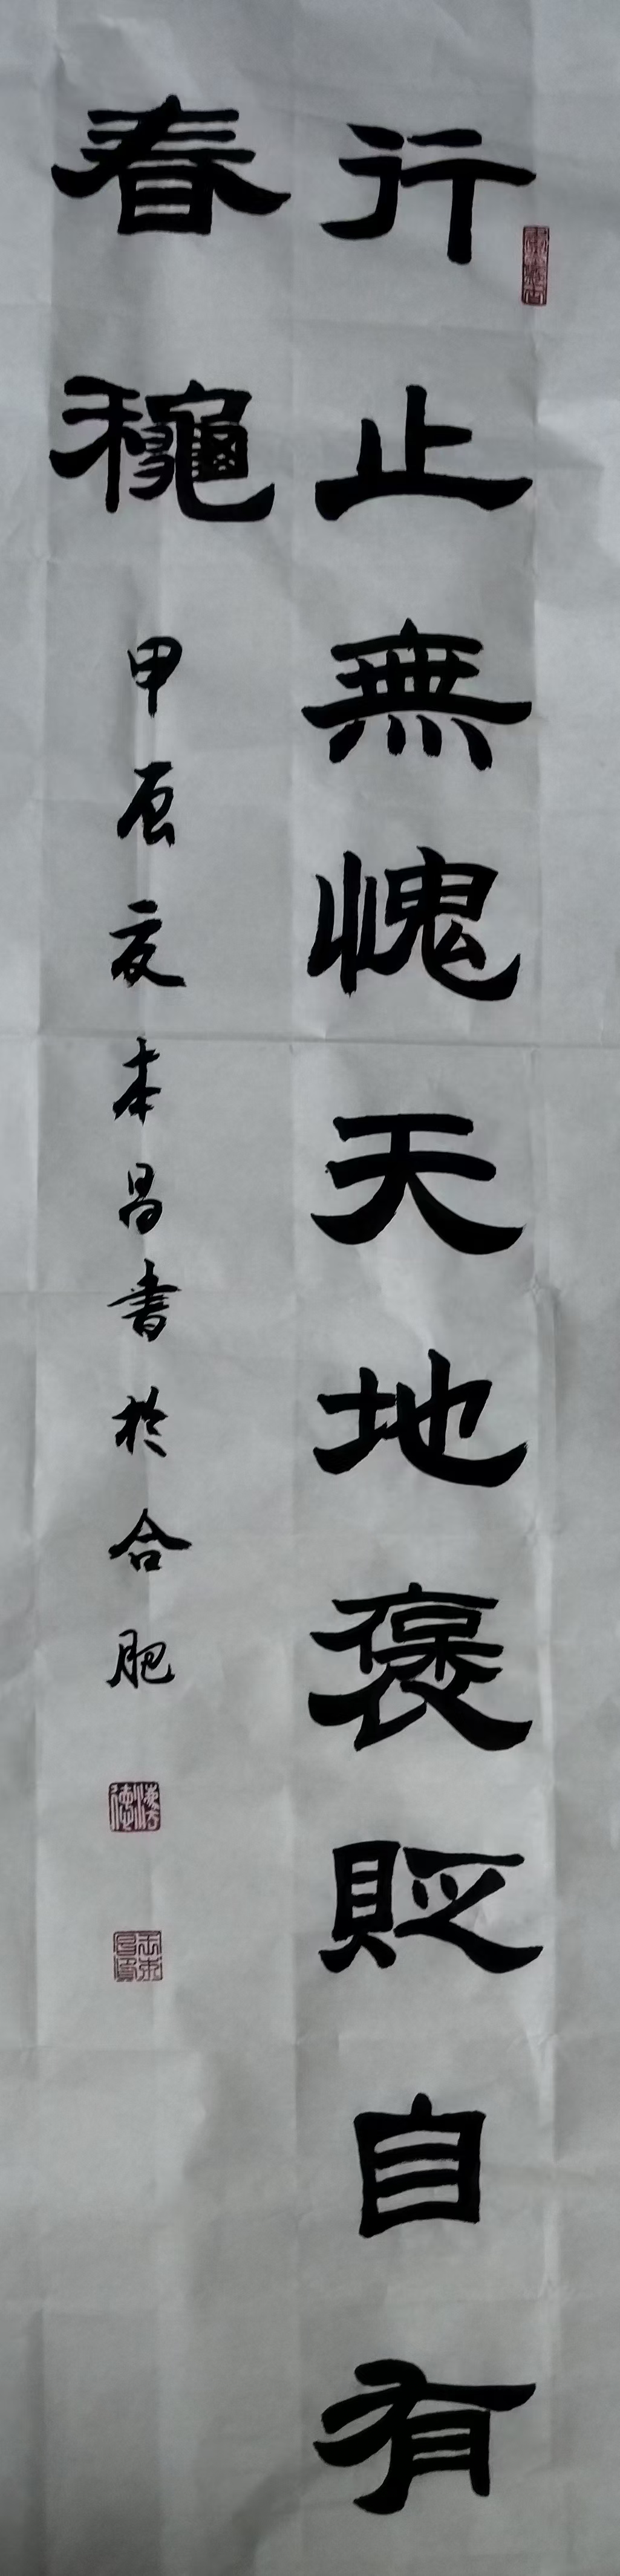 行止無愧天地褒貶自有
春穐
甲辰夏本昌書於合肥